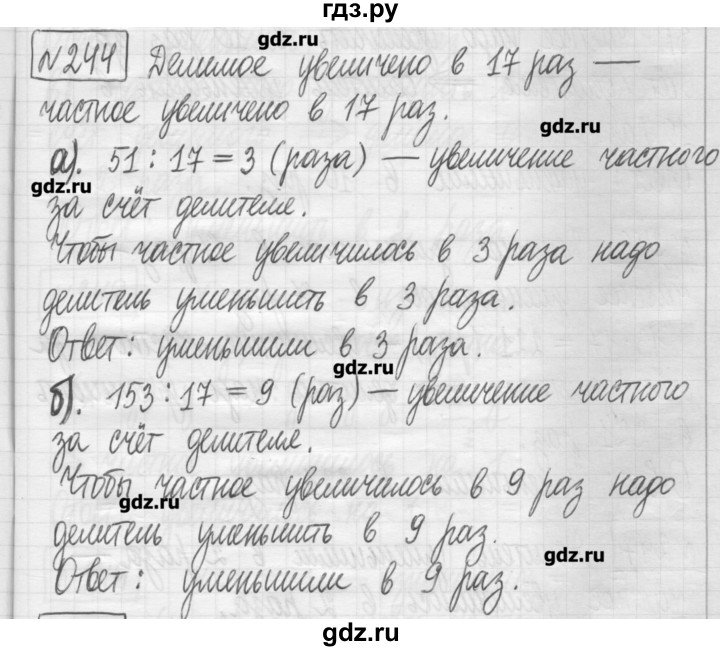 гдз.ру
gdz.ru
№244 Делимое увеличено в 17 раз —
частное увеличено в 17 раз.
gdz.ru
а). 51 : 17 = 3 (раза) — увеличение частного
gdz.ru
за счёт делителя.
Чтобы частное увеличилось в 3 раза надо
делитель уменьшить в 3 раза.
Ответ: уменьшили в 3 раза.
gdz.ru
б). 153 : 17 = 9 (раз) — увеличение частного
за счёт делителя.
Чтобы частное увеличилось в 9 раз надо
gdz.ru
делитель уменьшить в 9 раз.
gdz.ru
Ответ: уменьшили в 9 раз.
gdz.ru